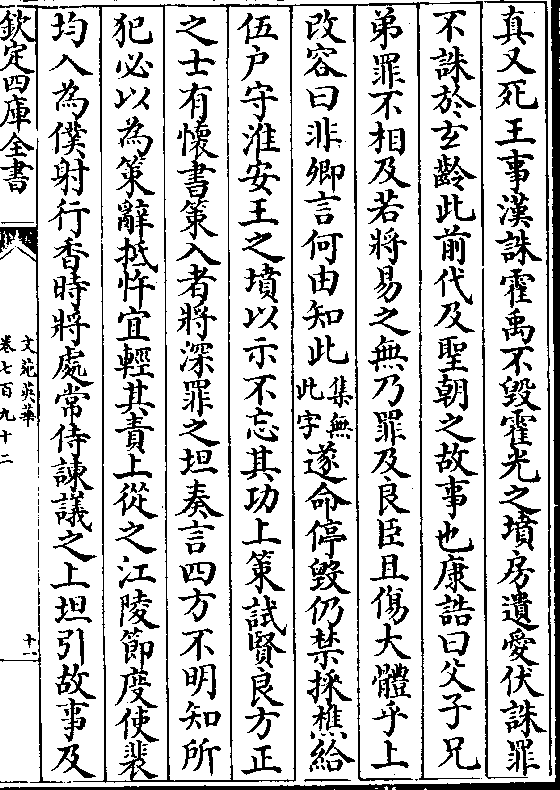 真又死王事漢誅霍禹不毀霍光之墳房遺愛伏誅罪
不誅於玄齡此前代及聖朝之故事也康誥曰父子兄
弟罪不相及若將易之無乃罪及良臣且傷大體乎上
改容曰非卿言何由知此集無此字遂命停毀仍禁採樵給
伍户守淮安王之墳以示不忘其功上策試賢良方正
之士有懷書策入者將深罪之坦奏言四方不明知所
犯必以為策辭抵忤宜輕其責上從之江陵節度使裴
均入為僕射行香時將處常侍諫議之上坦引故事及
欽定四庫全書
文苑英華
卷七百九十二
十一